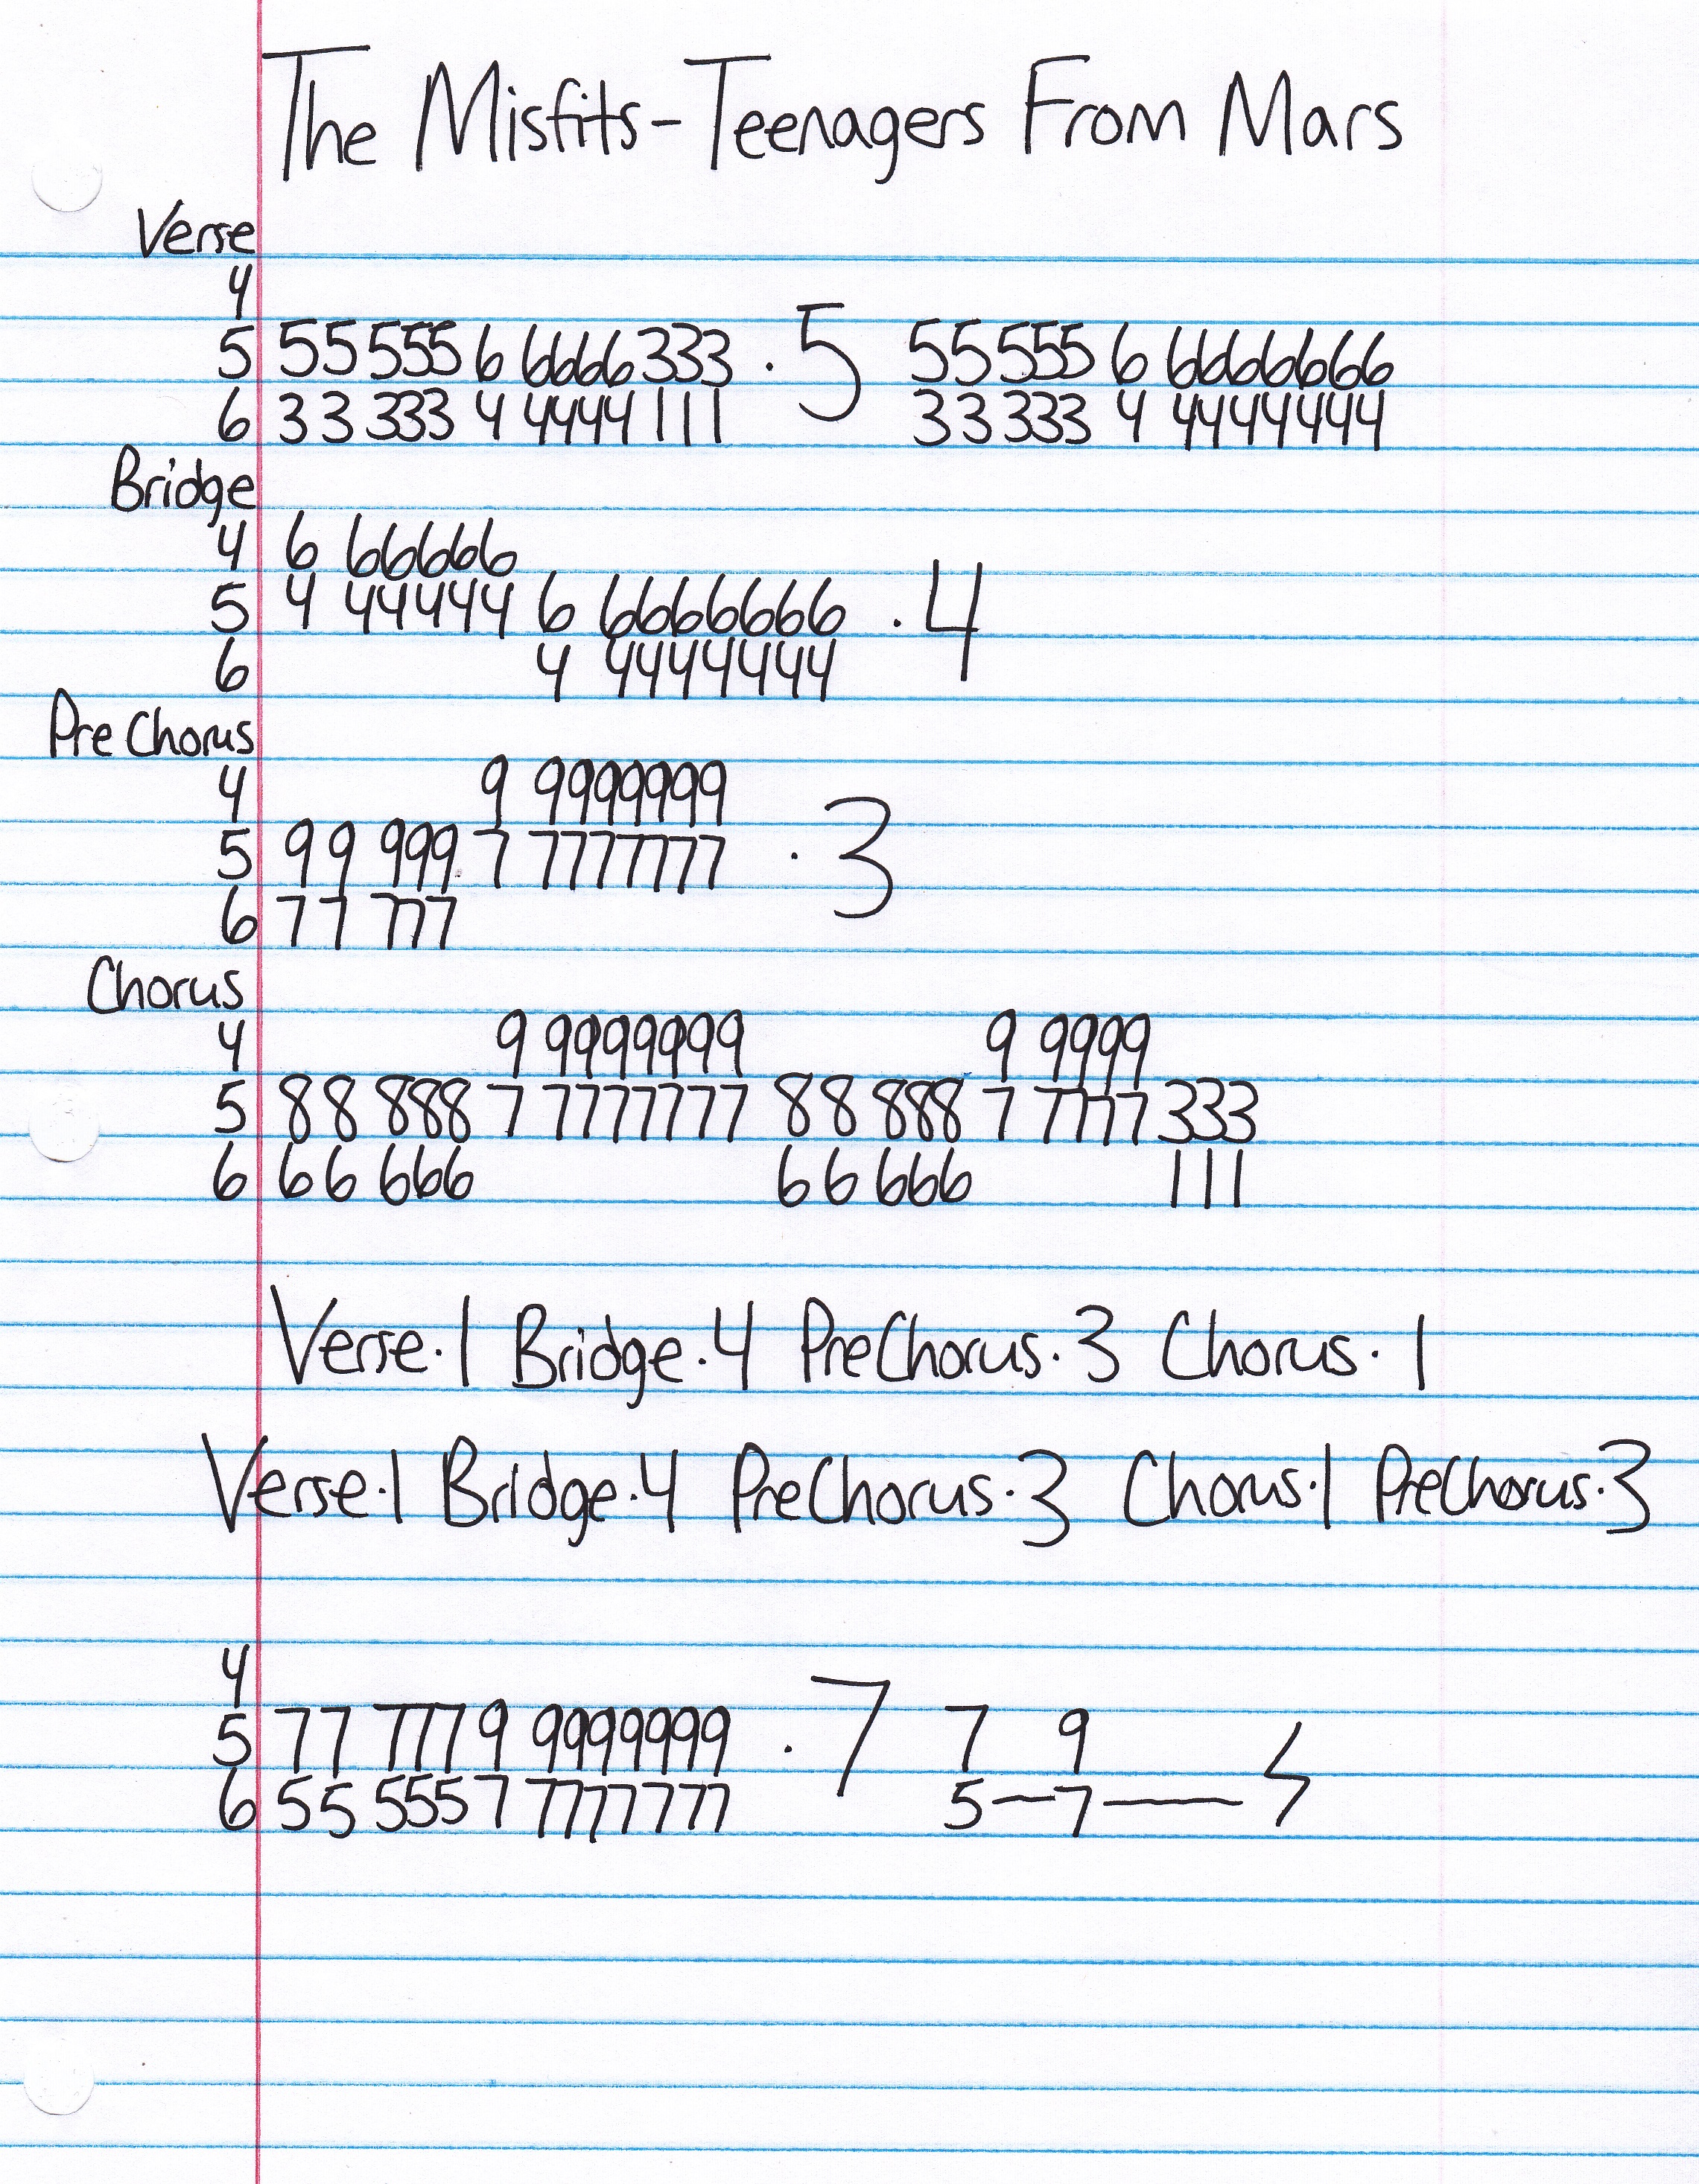 The Misfits-Teenagers From Mars
Verse
4
5 55 555 6 6666333 · 5 55 555 6 6666666
6 33 333 4 4444111 33 333 4 4444444
Bridge
4 6 66666
5 4 44444 6 6666666 · 4
6 4 4444444
Pre Chorus
4 9 9999999
5 99 999 7 7777777 · 3
6 77 777
Chorus
4 9 9999999 9 9999
5 88 888 7 7777777 88 888 7 7777333
6 66 666 66 666 111
Verse·1 Bridge·4 PreChorus·3 Chorus·1
Verse·1 Bridge·4 PreChorus·3 Chorus·1 PreChorus·3
4
5 77 7779 9999999 · 7 7 9
6 55 5557 7777777 5—7——